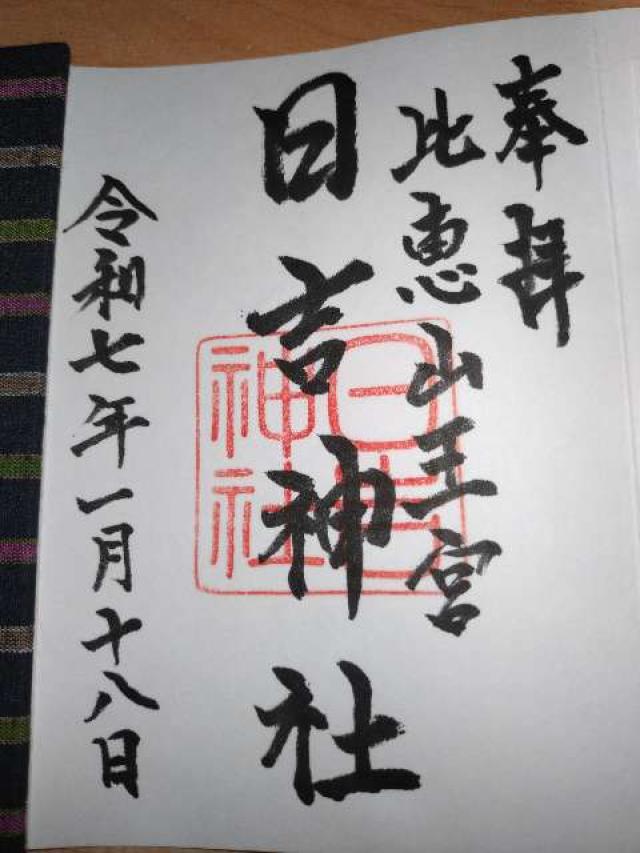 奉拝
比恵山王宮
日吉神社
日吉
神社
令和七年一月十八日